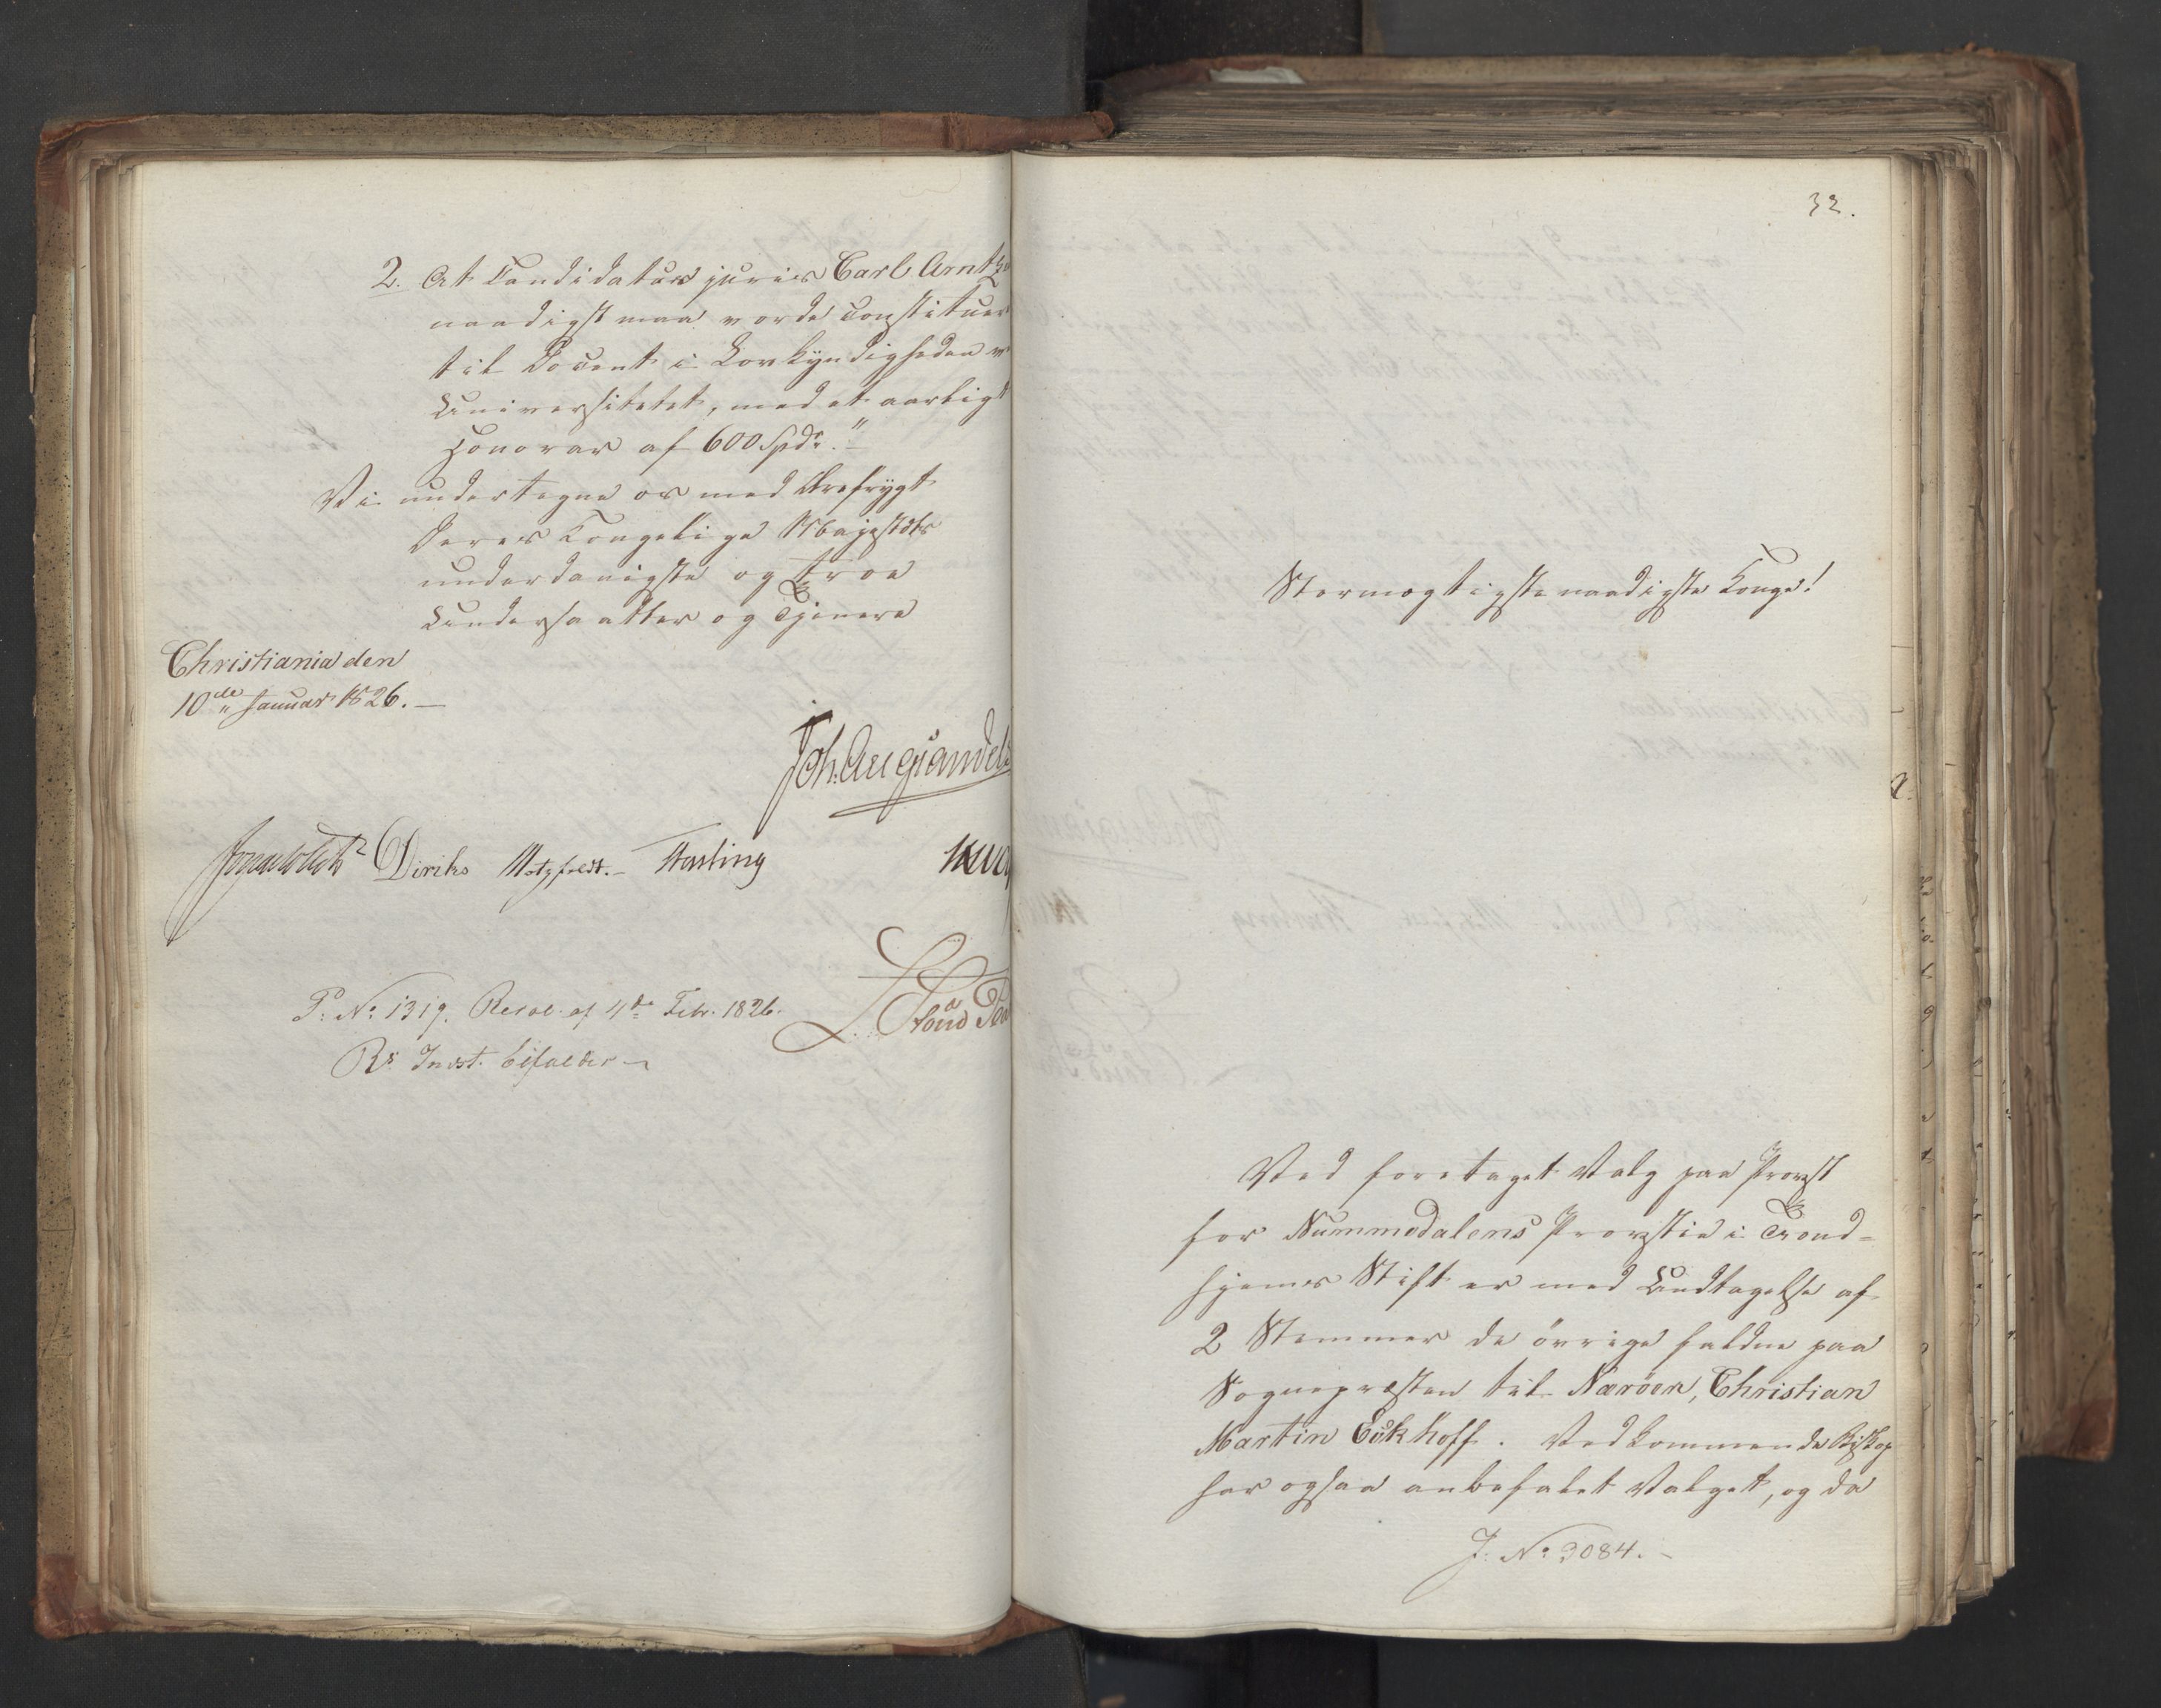 2. At Candidatus juris Carl Arntze
naadigst maa vorde constituer
til Docent i Lovkyndigheden v
Universitetet, med et aarligt
Honorar af 600 Spdr."
Vi undertegne os med Ærefrygt
Deres Kongelige Majestæts
underdanigste og troe
Undersaatter og Tjenere
Christiania den
10de Januar 1826.
Joh. Aug Sandels
Diriks Motzfeldt. Fasting
P: No 1319. Resol. af 4de Febr. 1826.
Rs Indst. bifaldes
32.
Stormægtigste naadigste Konge!
Ved foretaget Valg paa Provst
for Nummedalens Provstie i Trond=
hjems Stift er med Undtagelse af
2 Stemmer de övrige faldne paa
Sognepræsten til Næröen, Christian
Martin Eckhoff. Vedkommende Biskop
har ogsaa anbefalet Valget, og da
J: No 3084.